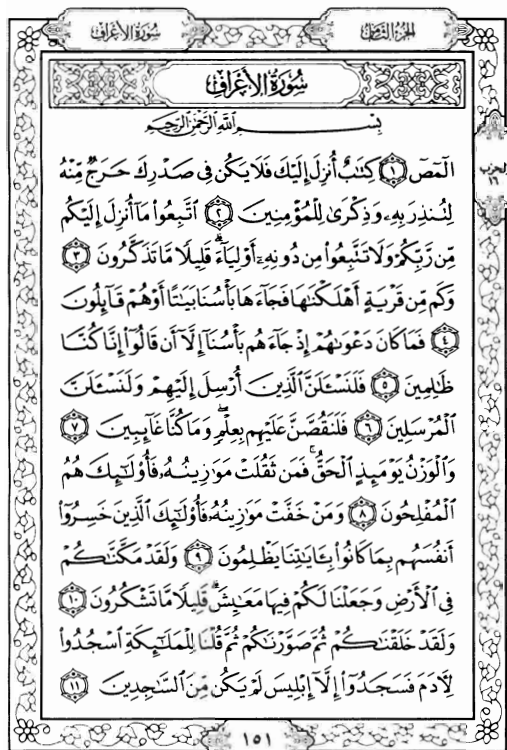 سُورَةُ الأَعْرَافِ
الجُزْءُ الثَّامِنُ
سُورَةُ الأَعْرَافِ
بِسْمِ ٱللَّهِ ٱلرَّحْمَٰنِ ٱلرَّحِيمِ
الٓمٓصٓ ١ كِتَٰبٌ أُنزِلَ إِلَيْكَ فَلَا يَكُن فِى صَدْرِكَ حَرَجٌ مِّنْهُ
لِتُنذِرَ بِهِۦ وَذِكْرَىٰ لِلْمُؤْمِنِينَ ٢ ٱتَّبِعُوا۟ مَآ أُنزِلَ إِلَيْكُم
مِّن رَّبِّكُمْ وَلَا تَتَّبِعُوا۟ مِن دُونِهِۦٓ أَوْلِيَآءَ ۗ قَلِيلًا مَّا تَذَكَّرُونَ ٣
وَكَم مِّن قَرْيَةٍ أَهْلَكْنَٰهَا فَجَآءَهَا بَأْسُنَا بَيَٰتًا أَوْ هُمْ قَآئِلُونَ
٤ فَمَا كَانَ دَعْوَىٰهُمْ إِذْ جَآءَهُم بَأْسُنَآ إِلَّآ أَن قَالُوٓا۟ إِنَّا كُنَّا
ظَٰلِمِينَ ٥ فَلَنَسْـَٔلَنَّ ٱلَّذِينَ أُرْسِلَ إِلَيْهِمْ وَلَنَسْـَٔلَنَّ
ٱلْمُرْسَلِينَ ٦ فَلَنَقُصَّنَّ عَلَيْهِم بِعِلْمٍ ۖ وَمَا كُنَّا غَآئِبِينَ ٧
وَٱلْوَزْنُ يَوْمَئِذٍ ٱلْحَقُّ ۚ فَمَن ثَقُلَتْ مَوَٰزِينُهُۥ فَأُو۟لَٰٓئِكَ هُمُ
ٱلْمُفْلِحُونَ ٨ وَمَنْ خَفَّتْ مَوَٰزِينُهُۥ فَأُو۟لَٰٓئِكَ ٱلَّذِينَ خَسِرُوٓا۟
أَنفُسَهُم بِمَا كَانُوا۟ بِـَٔايَٰتِنَا يَظْلِمُونَ ٩ وَلَقَدْ مَكَّنَّٰكُمْ
فِى ٱلْأَرْضِ وَجَعَلْنَا لَكُمْ فِيهَا مَعَٰيِشَ ۗ قَلِيلًا مَّا تَشْكُرُونَ ١٠
وَلَقَدْ خَلَقْنَٰكُمْ ثُمَّ صَوَّرْنَٰكُمْ ثُمَّ قُلْنَا لِلْمَلَٰٓئِكَةِ ٱسْجُدُوا۟
لِـَٔادَمَ فَسَجَدُوٓا۟ إِلَّآ إِبْلِيسَ لَمْ يَكُن مِّنَ ٱلسَّٰجِدِينَ ١١
الحزب
١٦
١٥١